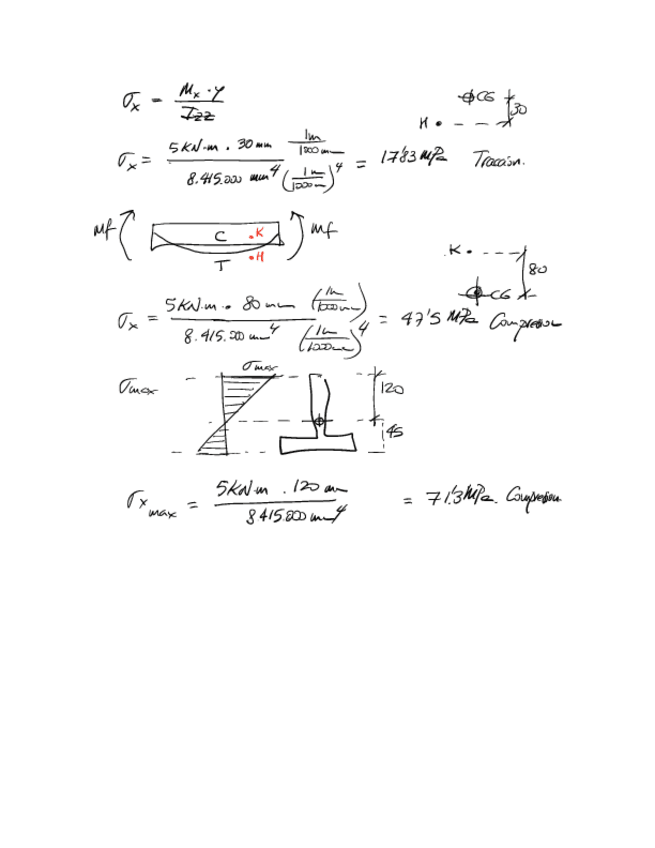 σx = Mx · y / Izz
⌖CG
30
H • – – –
σx = 5 KN·m · 30 mm (1m / 1000 mm) / 8.415.000 mm⁴ (1m / 1000 m)⁴ = 17'83 MPa Tracción.
Mf C •K Mf
T •H
K • – – –
80
⌖CG
σx = 5 KN·m · 80 mm (1m / 1000 m) / 8.415.000 mm⁴ (1m / 1000 m)⁴ = 47'5 MPa Compresion
σmax
σmax
120
45
σx max = 5 KN·m · 120 mm / 8 415.000 mm⁴ = 71'3 MPa. Compresion